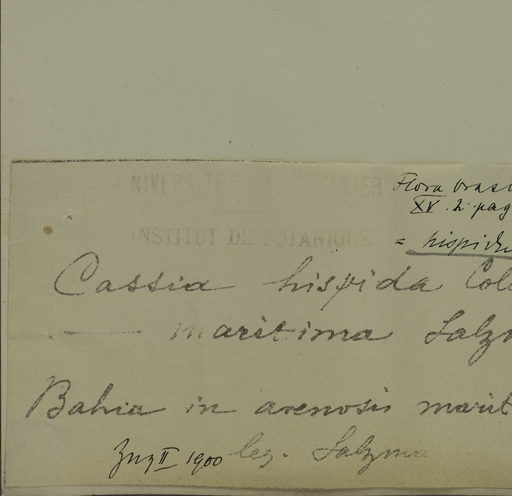 UNIVERSITÉ DE MONTPELLIER
Flora bras
XV. 2. pag
INSTITUT DE BOTANIQUE
= hispid
Cassia hispida Col
— maritima Salz
Bahia in arenosis marit
II 1900 leg. Salzma